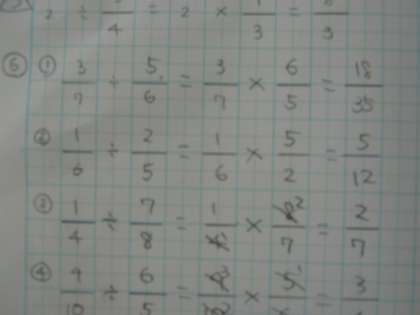 2 ÷ /4 = 2 × 1/3 = 8/3
⑤ ① 3/7 ÷ 5/6 = 3/7 × 6/5 = 18/35
② 1/6 ÷ 2/5 = 1/6 × 5/2 = 5/12
③ 1/4 ÷ 7/8 = 1/4 × 8 2/7 = 2/7
④ 4/10 ÷ 6/5 = × = 3/